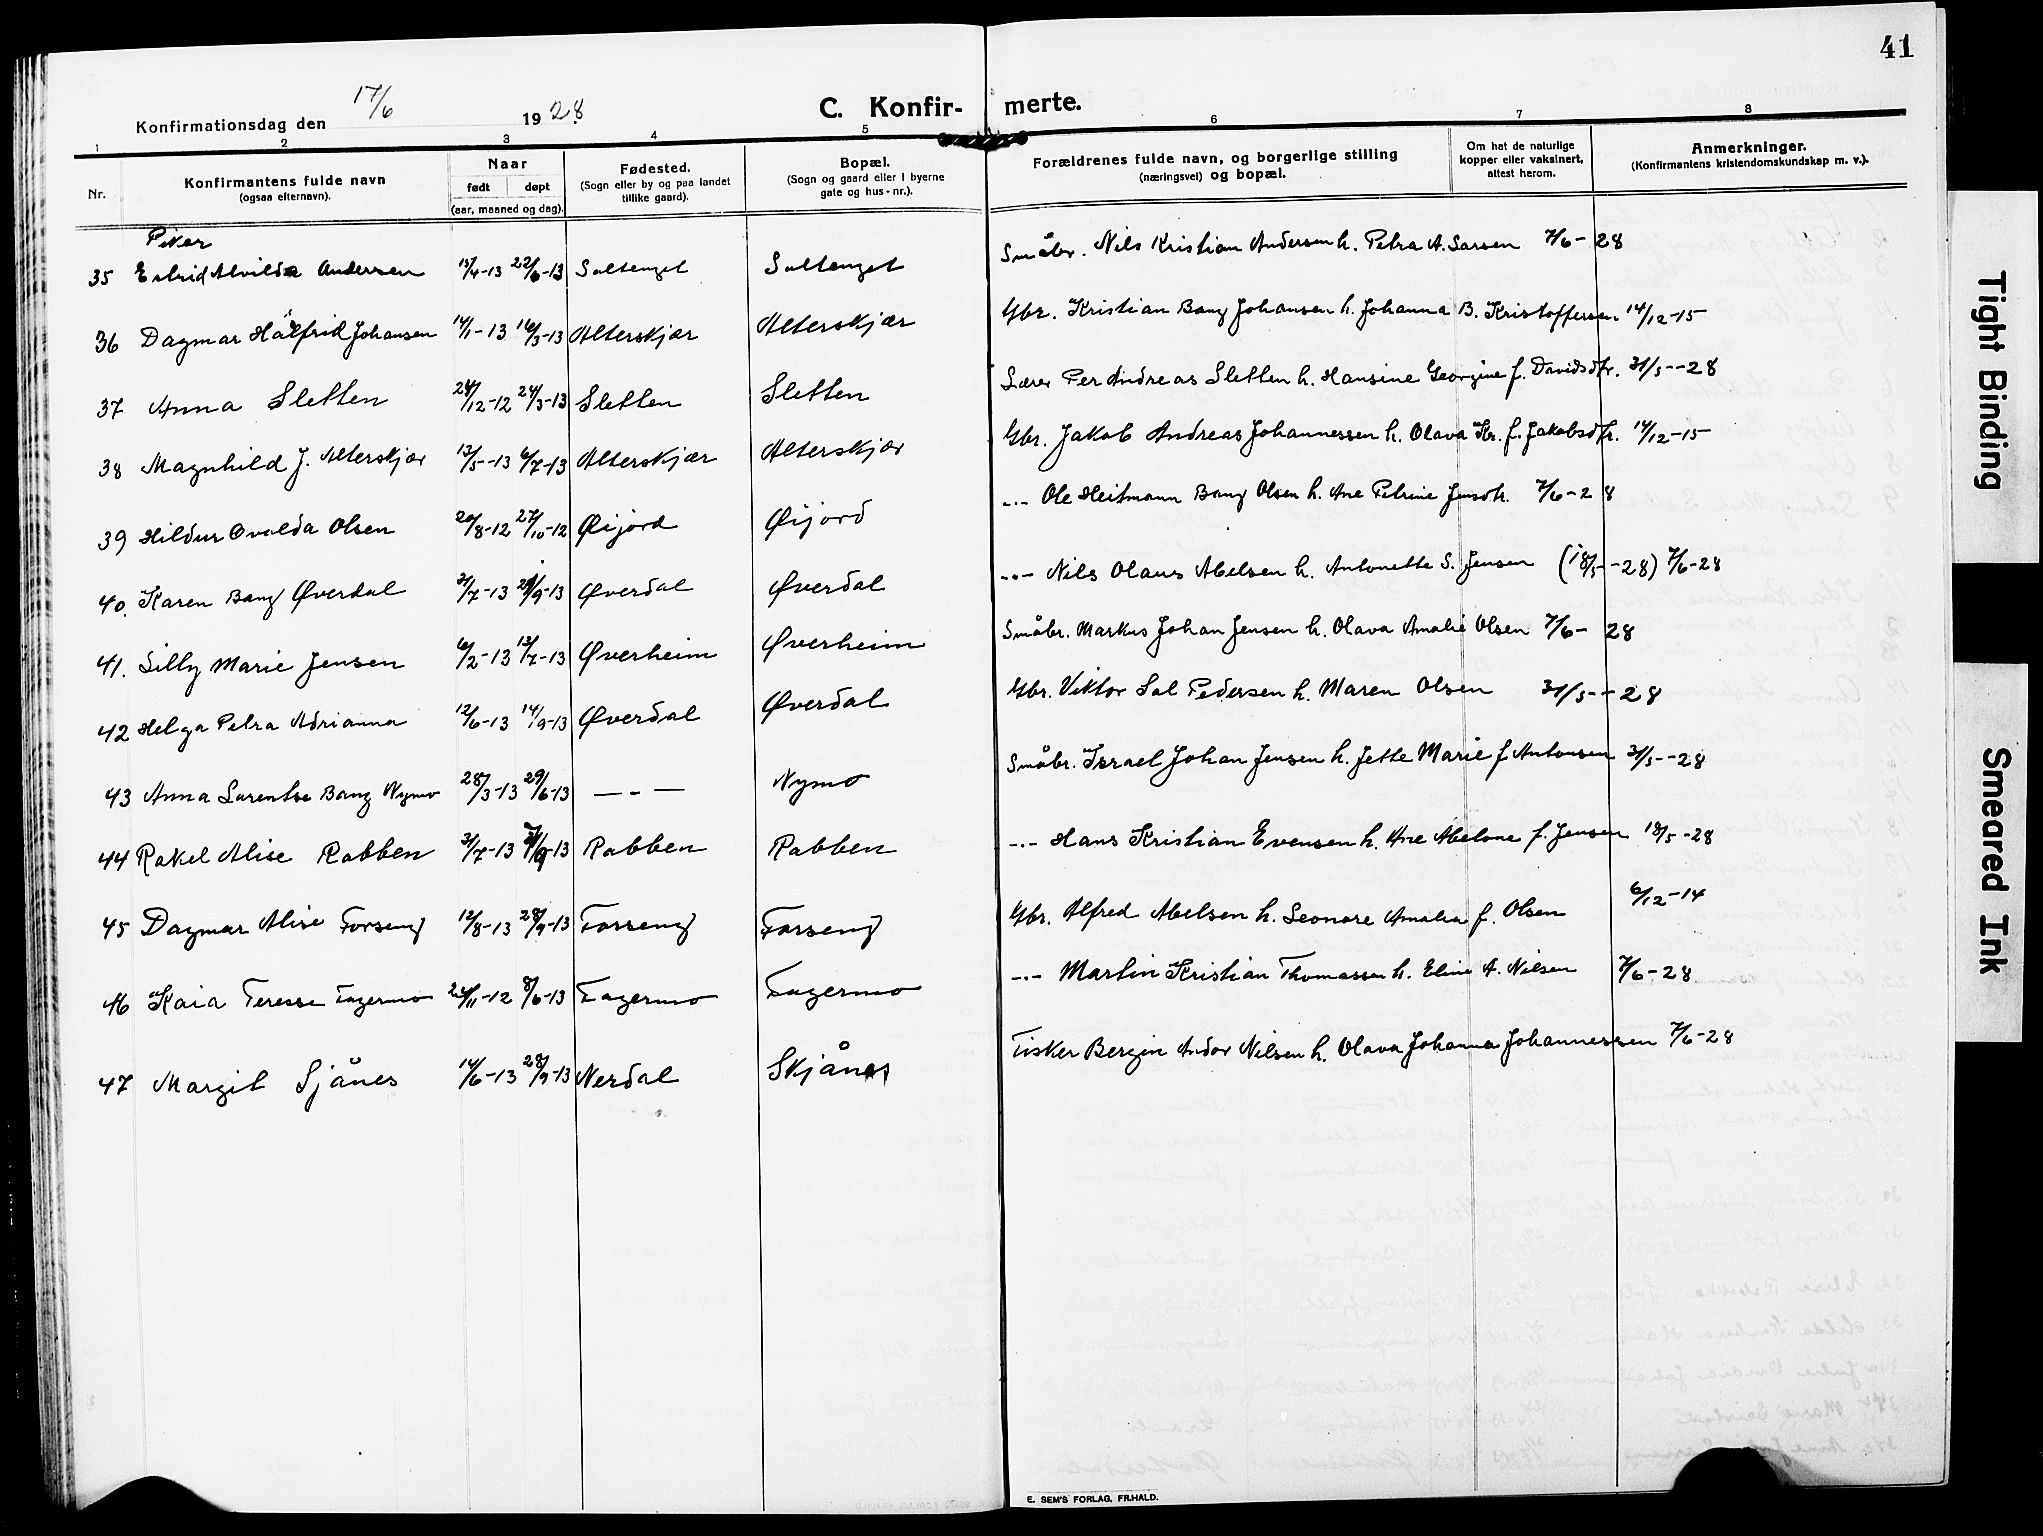 41
Konfirmationsdag den 17/6 1928
C. Konfir- merte.
1 2 3 4 5 6 7 8
Nr.
Konfirmantens fulde navn
(ogsaa efternavn).
Naar
født døpt
(aar, maaned og dag).
Fødested.
(Sogn eller by og paa landet
tillike gaard).
Bopæl.
(Sogn og gaard eller i byerne
gate og hus-nr.).
Forældrenes fulde navn, og borgerlige stilling
(næringsvei) og bopæl.
Om hat de naturlige
kopper eller vaksinert,
attest herom.
Anmerkninger.
(Konfirmantens kristendomskundskap m. v.).
Piker
35 Estrid Alvilda Andersen 13/4-13 22/6-13 Soltenget Soltenget Småbr. Nils Kristian Andersen h. Petra A. Larsen 7/6-28
36 Dagmar Hålfrid Johansen 14/1-13 16/3-13 Alterskjær Alterskjær Gbr. Kristian Bang Johansen h. Johanna B. Kristoffersen. 14/12-15
37 Anna Sletten 24/12-12 24/3-13 Sletten Sletten Lærer Per Andreas Sletten h. Hansine Georgine f. Davidsdtr. 31/5--28
38 Magnhild J. Alterskjær 13/5-13 6/7-13 Alterskjær Alterskjær Gbr. Jakob Andreas Johannessen h. Olava Kr. f. Jakobsdtr. 14/12-15
39 Hildur Ovalda Olsen 20/8-12 27/10-12 Øijord Øijord -.- Ole Heitmann Bang Olsen h. Ane Petrine 7/6-28
40. Karen Bang Øverdal 31/7-13 /9-13 Øverdal Øverdal -.- Nils Olaus Abelsen h. Antonette S. Jensen (18/5-28) 7/6-28
41. Lilly Marie Jensen 6/2-13 13/7-13 Øverheim Øverheim Småbr. Markus Johan Jensen h. Olava Amalie Olsen 7/6-28
42 Helga Petra Adrianna 12/6-13 14/9-13 Øverdal Øverdal Gbr. Viktor Sal Pedersen h. Maren Olsen 31/5--28
43 Anna Larentse Bang Nymo 28/3-13 29/6-13 -.- Nymo Småbr. Israel Johan Jensen h. Jette Marie f Antonsen 31/5--28
44 Rakel Alise Rabben 31/7-13 /9-13 Rabben Rabben -.- Hans Kristian Evensen h. Ane Abelone f. Jensen 18/5-28
45 Dagmar Alise Forseng 12/8-13 28/9-13 Forseng Forseng Gbr. Alfred Abelsen h. Leonore Amalia f. Olsen 6/12-14
46 Kaia Terese Fagermo 24/11-12 8/6-13 Fagermo Fagermo -.- Martin Kristian Thomassen h. Eline A. Nilsen 7/6-28
47 Margit Sjånes 14/6-13 28/9-13 Nerdal Skjånes Fisker Bergin Andor Nilsen h. Olava Johanna Johannessen 7/6-28
E. SEM'S FORLAG, FR.HALD.
Tight Binding
Smeared Ink